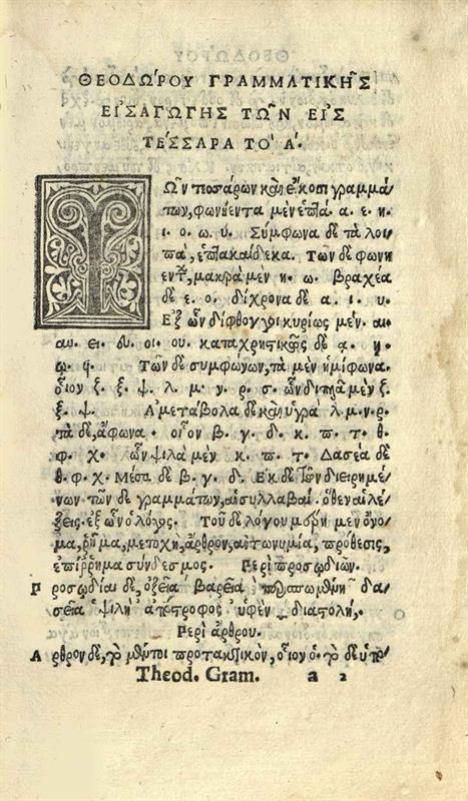 ΘΕΟΔΏΡΟΥ ΓΡΑΜΜΑΤΙΚΗ͂Σ
ΕΙ᾿ΣΑΓΩΓΗ͂Σ ΤΩ͂Ν ΕΙ᾿Σ
ΤΕ´ΣΣΑΡΑ ΤΟ` Α´.
ΤΩ͂ν τεσσάρων καὶ εἴκοσι γραμμά/
των, φωνήεντα μὲν ἑπτά. α. ε. η.
ι. ο. ω. υ. Σύμφωνα δὲ τὰ λοι/
πὰ, ἑπτακαίδεκα. Των δὲ φωνη
έντ, μακρὰ μεν η. ω. βραχέα
δὲ ε. ο. δίχρονα δὲ α. ι. υ.
Εξ ὧν δίφθογγοι κυρίως μέν. αι
αυ. ει. ευ. οι. ου. καταχρηστικῶς δὲ ᾳ. ῃ
ῳ. Των δὲ συμφώνων, τὰ μὲν ἡμίφωνα.
οἷον ζ. ξ. ψ. λ. μ. ν. ρ. σ. ὧν διπλᾶ μὲν ζ.
ξ. ψ. Αμετάβολα δὲ καὶ ὑγρὰ λ. μ. ν. ρ.
τὰ δὲ, ἄφωνα. οἷον β. γ. δ. κ. π. τ. θ.
φ. χ. ὧν ψιλὰ μὲν κ. π. τ. Δασέα δὲ
θ. φ. χ. Μέσα δὲ β. γ. δ. Εκ δὲ τῶν διειρημέ/
νων τῶν δὲ γραμμάτων, αἱ συλλαβαί. ὅθεν αἱ λέ/
ξεις. ἐξ ὧν ὁ λόγος. Τοῦ δὲ λόγου μέρη μὲν ὄνο/
μα, ῥῆμα, μετοχὴ, ἄρθρον, αὐτωνυμία, πρόθεσις,
ἐπίρρημα σύνδεσμος. Περὶ προσωδιῶν.
Προσωδίαι δὲ, ὀξεῖα βαρεῖα περισπωμένη δα/
σεῖα ψιλὴ ἀπόστροφος ὑφὲν διαστολή,.
Περὶ ἄρθρου.
Αρθρον δὲ, τὸ μὲν τοι προτακτικὸν, οἷον ὁ. τὸ δὲ ὑπο/
Theod. Gram. a 2